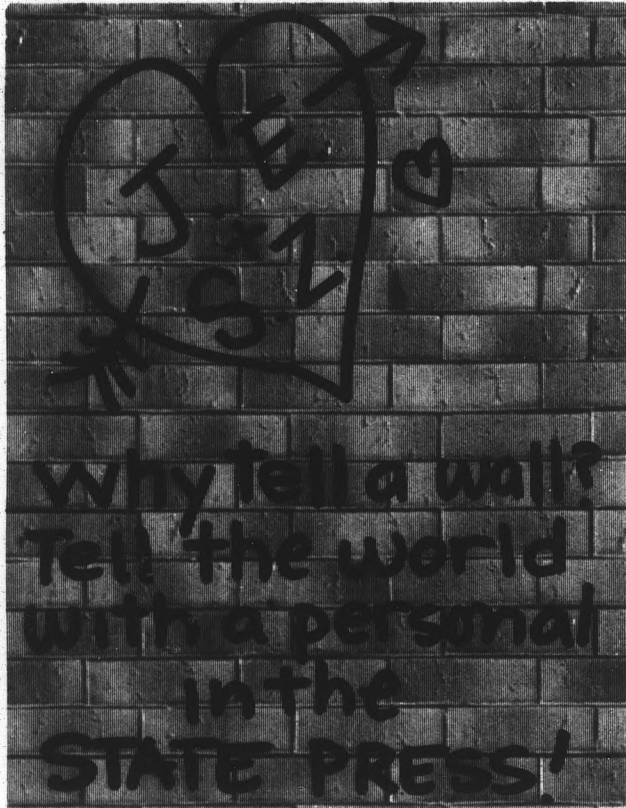 J E
+
S Z
Why tell a wall?
Tell the world
with a personal
in the
STATE PRESS!